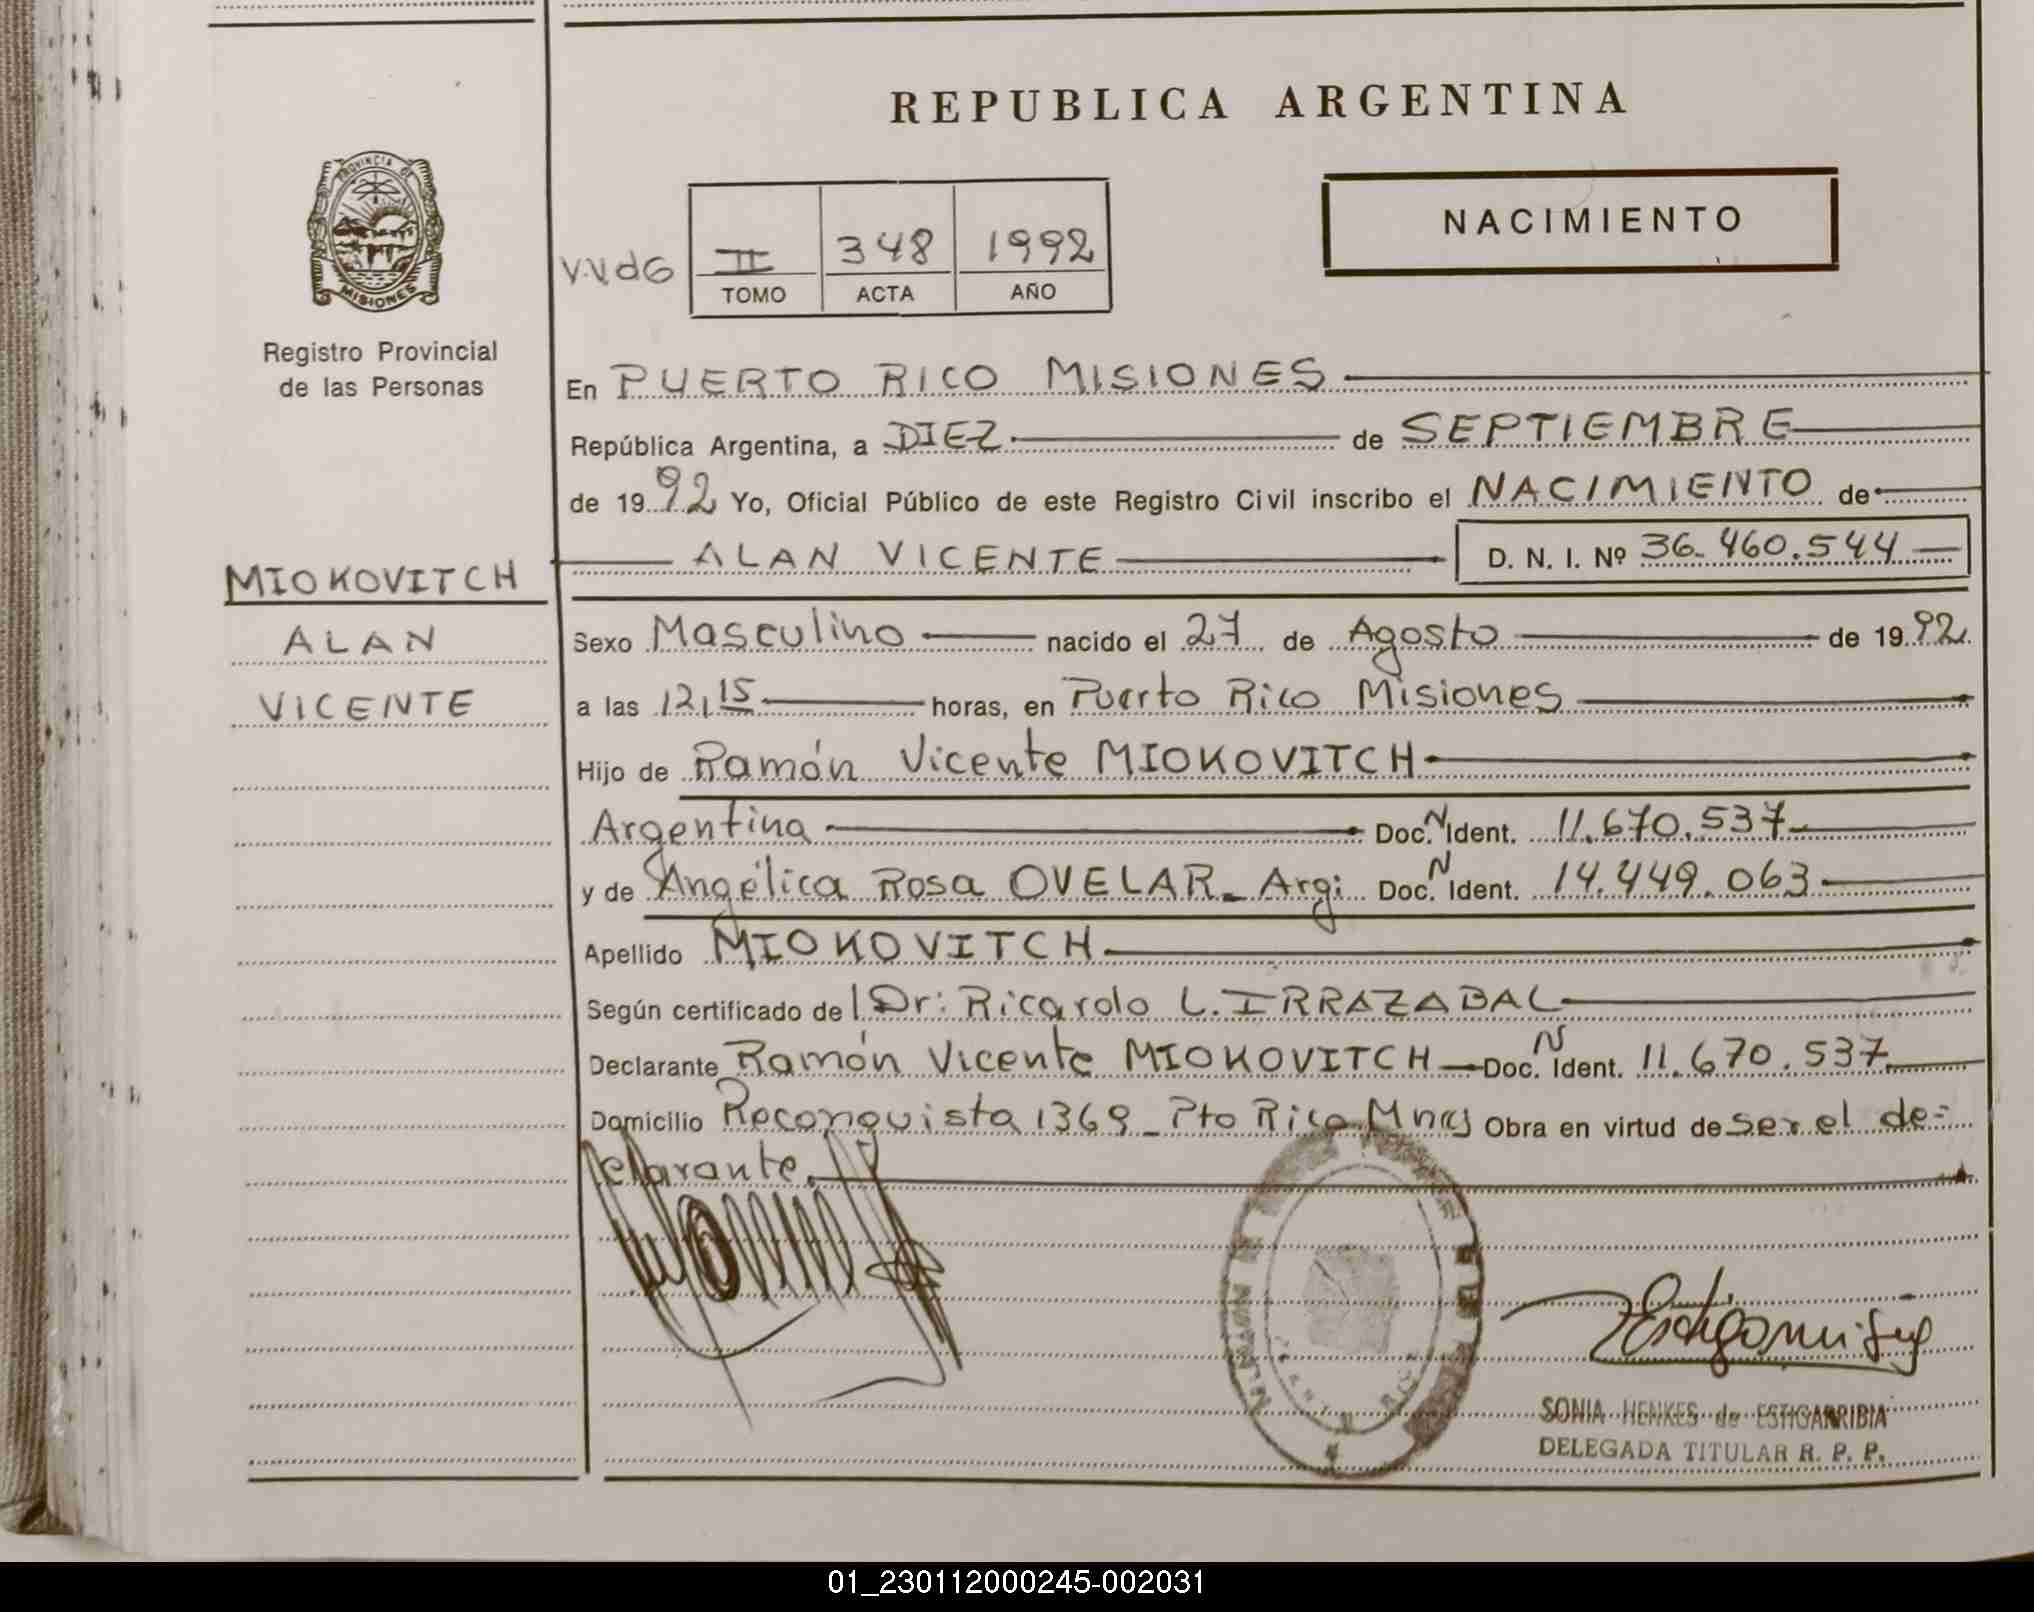 REPUBLICA ARGENTINA
PROVINCIA DE
MISIONES
Registro Provincial
de las Personas
NACIMIENTO
II 348 1992
TOMO ACTA AÑO
En PUERTO RICO MISIONES
República Argentina, a DIEZ de SEPTIEMBRE
de 1992 Yo, Oficial Público de este Registro Civil inscribo el NACIMIENTO de
ALAN VICENTE D. N. I. Nº 36.460.544
MIOKOVITCH
ALAN
VICENTE
Sexo Masculino nacido el 27 de Agosto de 1992.
a las 12,15 horas, en Puerto Rico Misiones
Hijo de Ramón Vicente MIOKOVITCH
Argentina Doc. N Ident. 11.670.537
y de Angélica Rosa OVELAR_ Arg: Doc. N Ident. 14.449.063
Apellido MIOKOVITCH
Según certificado del Dr: Ricardo L. IRRAZABAL
Declarante Ramón Vicente MIOKOVITCH Doc. N Ident. 11.670.537
Domicilio Reconquista 1369_ Pto Rico Mnes Obra en virtud de ser el de=
clarante.
SONIA HENKES de ESTIGARRIBIA
DELEGADA TITULAR R. P. P.
01_230112000245-002031